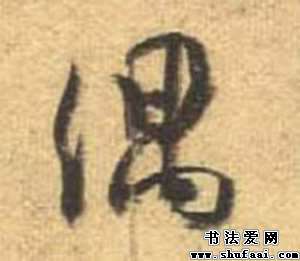 偶
书法爱网
www.shufaai.com